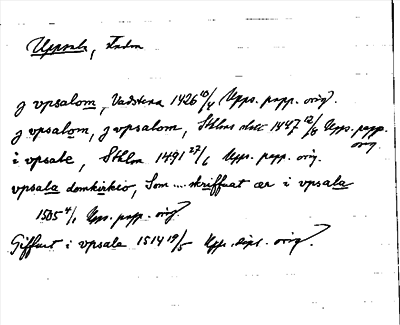 Upsala,
j vpsalom, Vadstena 1426 10/4 Upps. papp. orig.
j vpsalom, j vpsalom, Sthlms 1447 12/8 Upps. papp. orig.
i vpsale, Sthlm 1491 27/6 Upps. papp. orig.
vpsala domkirkio, Som ... skriffuat ær i vpsala
1505 4/1 Upps. papp. orig.
Giffuet i vpsala 1514 19/5 Upps. dipl. orig.